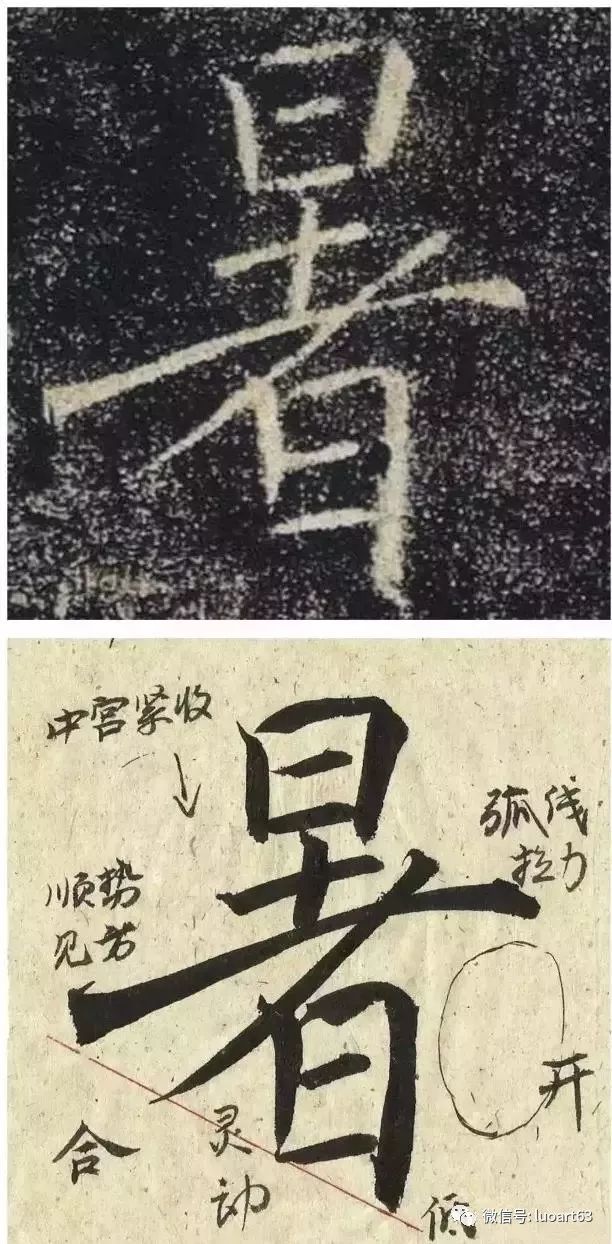 暑
中宫紧收
暑
弧线
拉力
顺势
见方
开
合
灵
动
低
微信号: luoart63